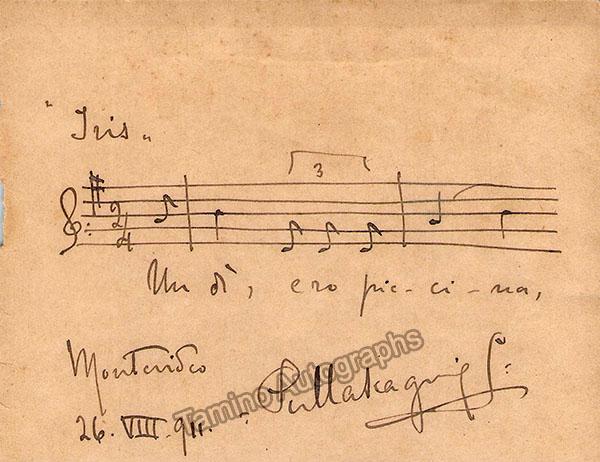 "Iris"
3
2
4
Un dì, ero pic-ci-na,
Montevideo
26. VIII. 911.
P. Mascagni
Tamino Autographs